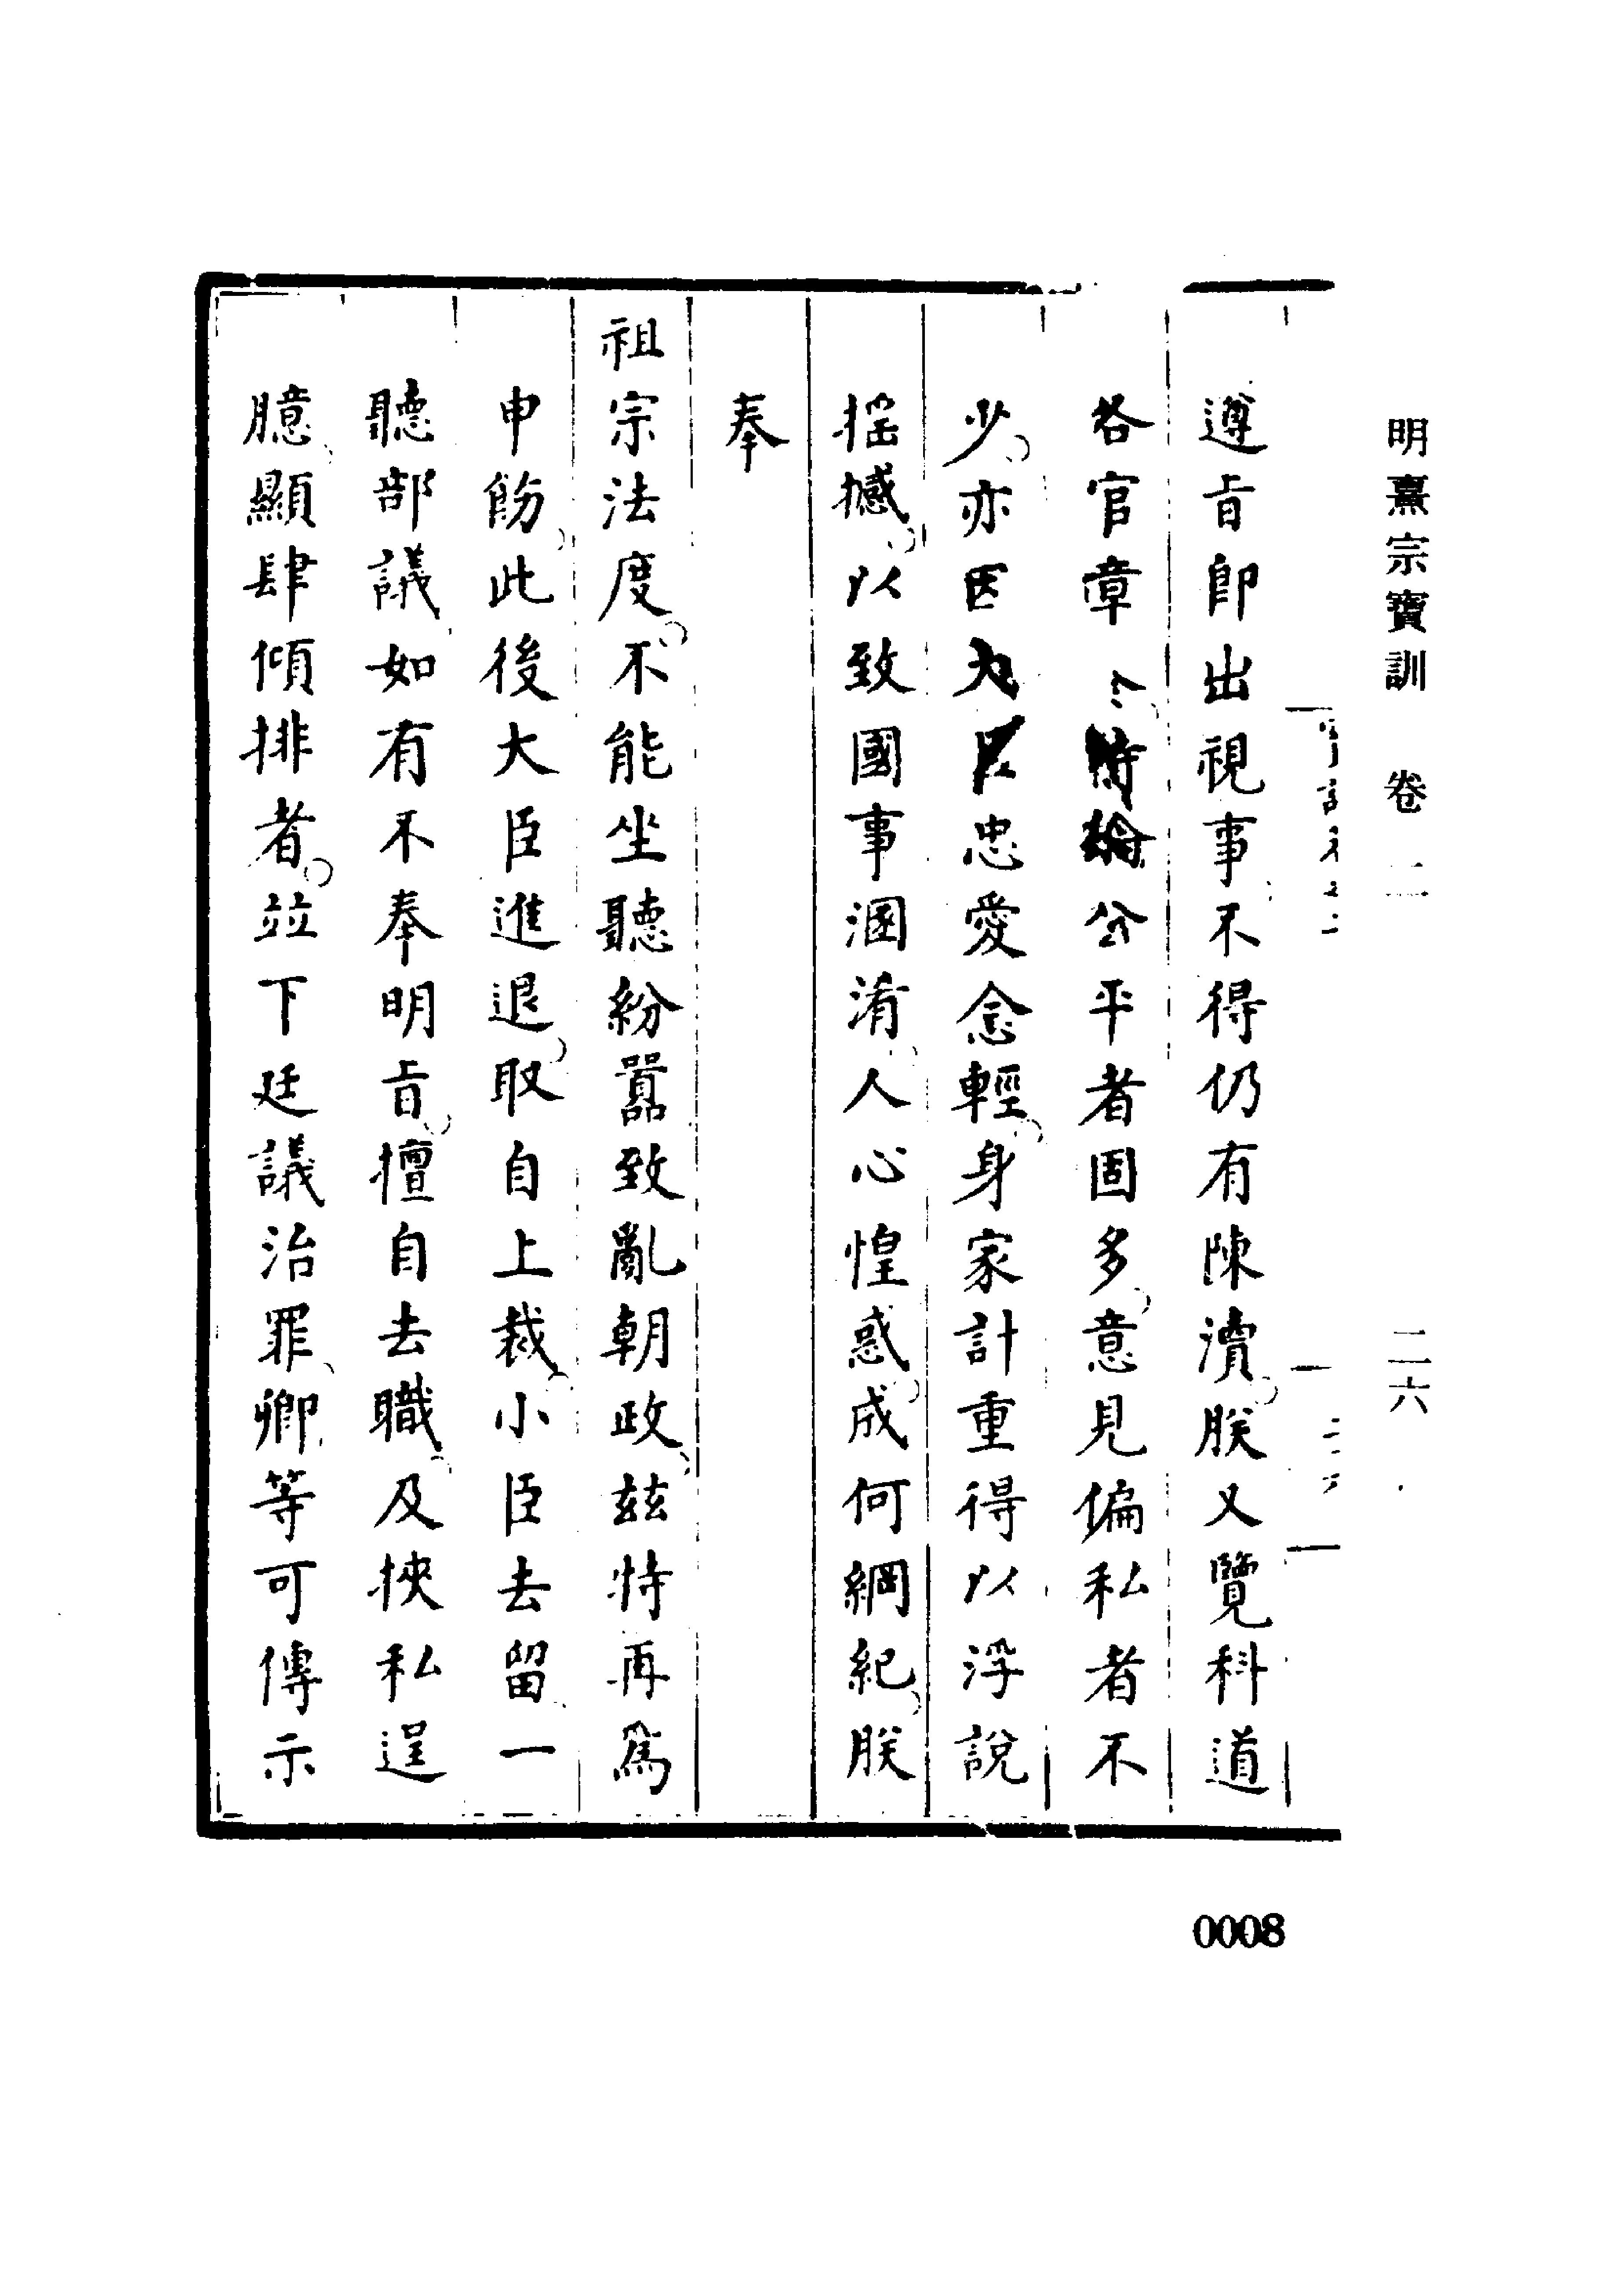 明熹宗寶訓 卷二 二六
遵㫖即出視事不得仍有陳瀆朕又覽科道
各官章 持論公平者固多意見偏私者不
少亦因大臣忠愛念輕身家計重得以浮說
揺撼以致國事溷淆人心惶惑成何綱紀朕
奉
祖宗法度不能坐聽紛囂致亂朝政兹特再爲
申飭此後大臣進退取自上裁小臣去留一
聽部議如有不奉明㫖擅自去職及挾私逞
臆顯肆傾排者並下廷議治罪卿等可傳示
0008